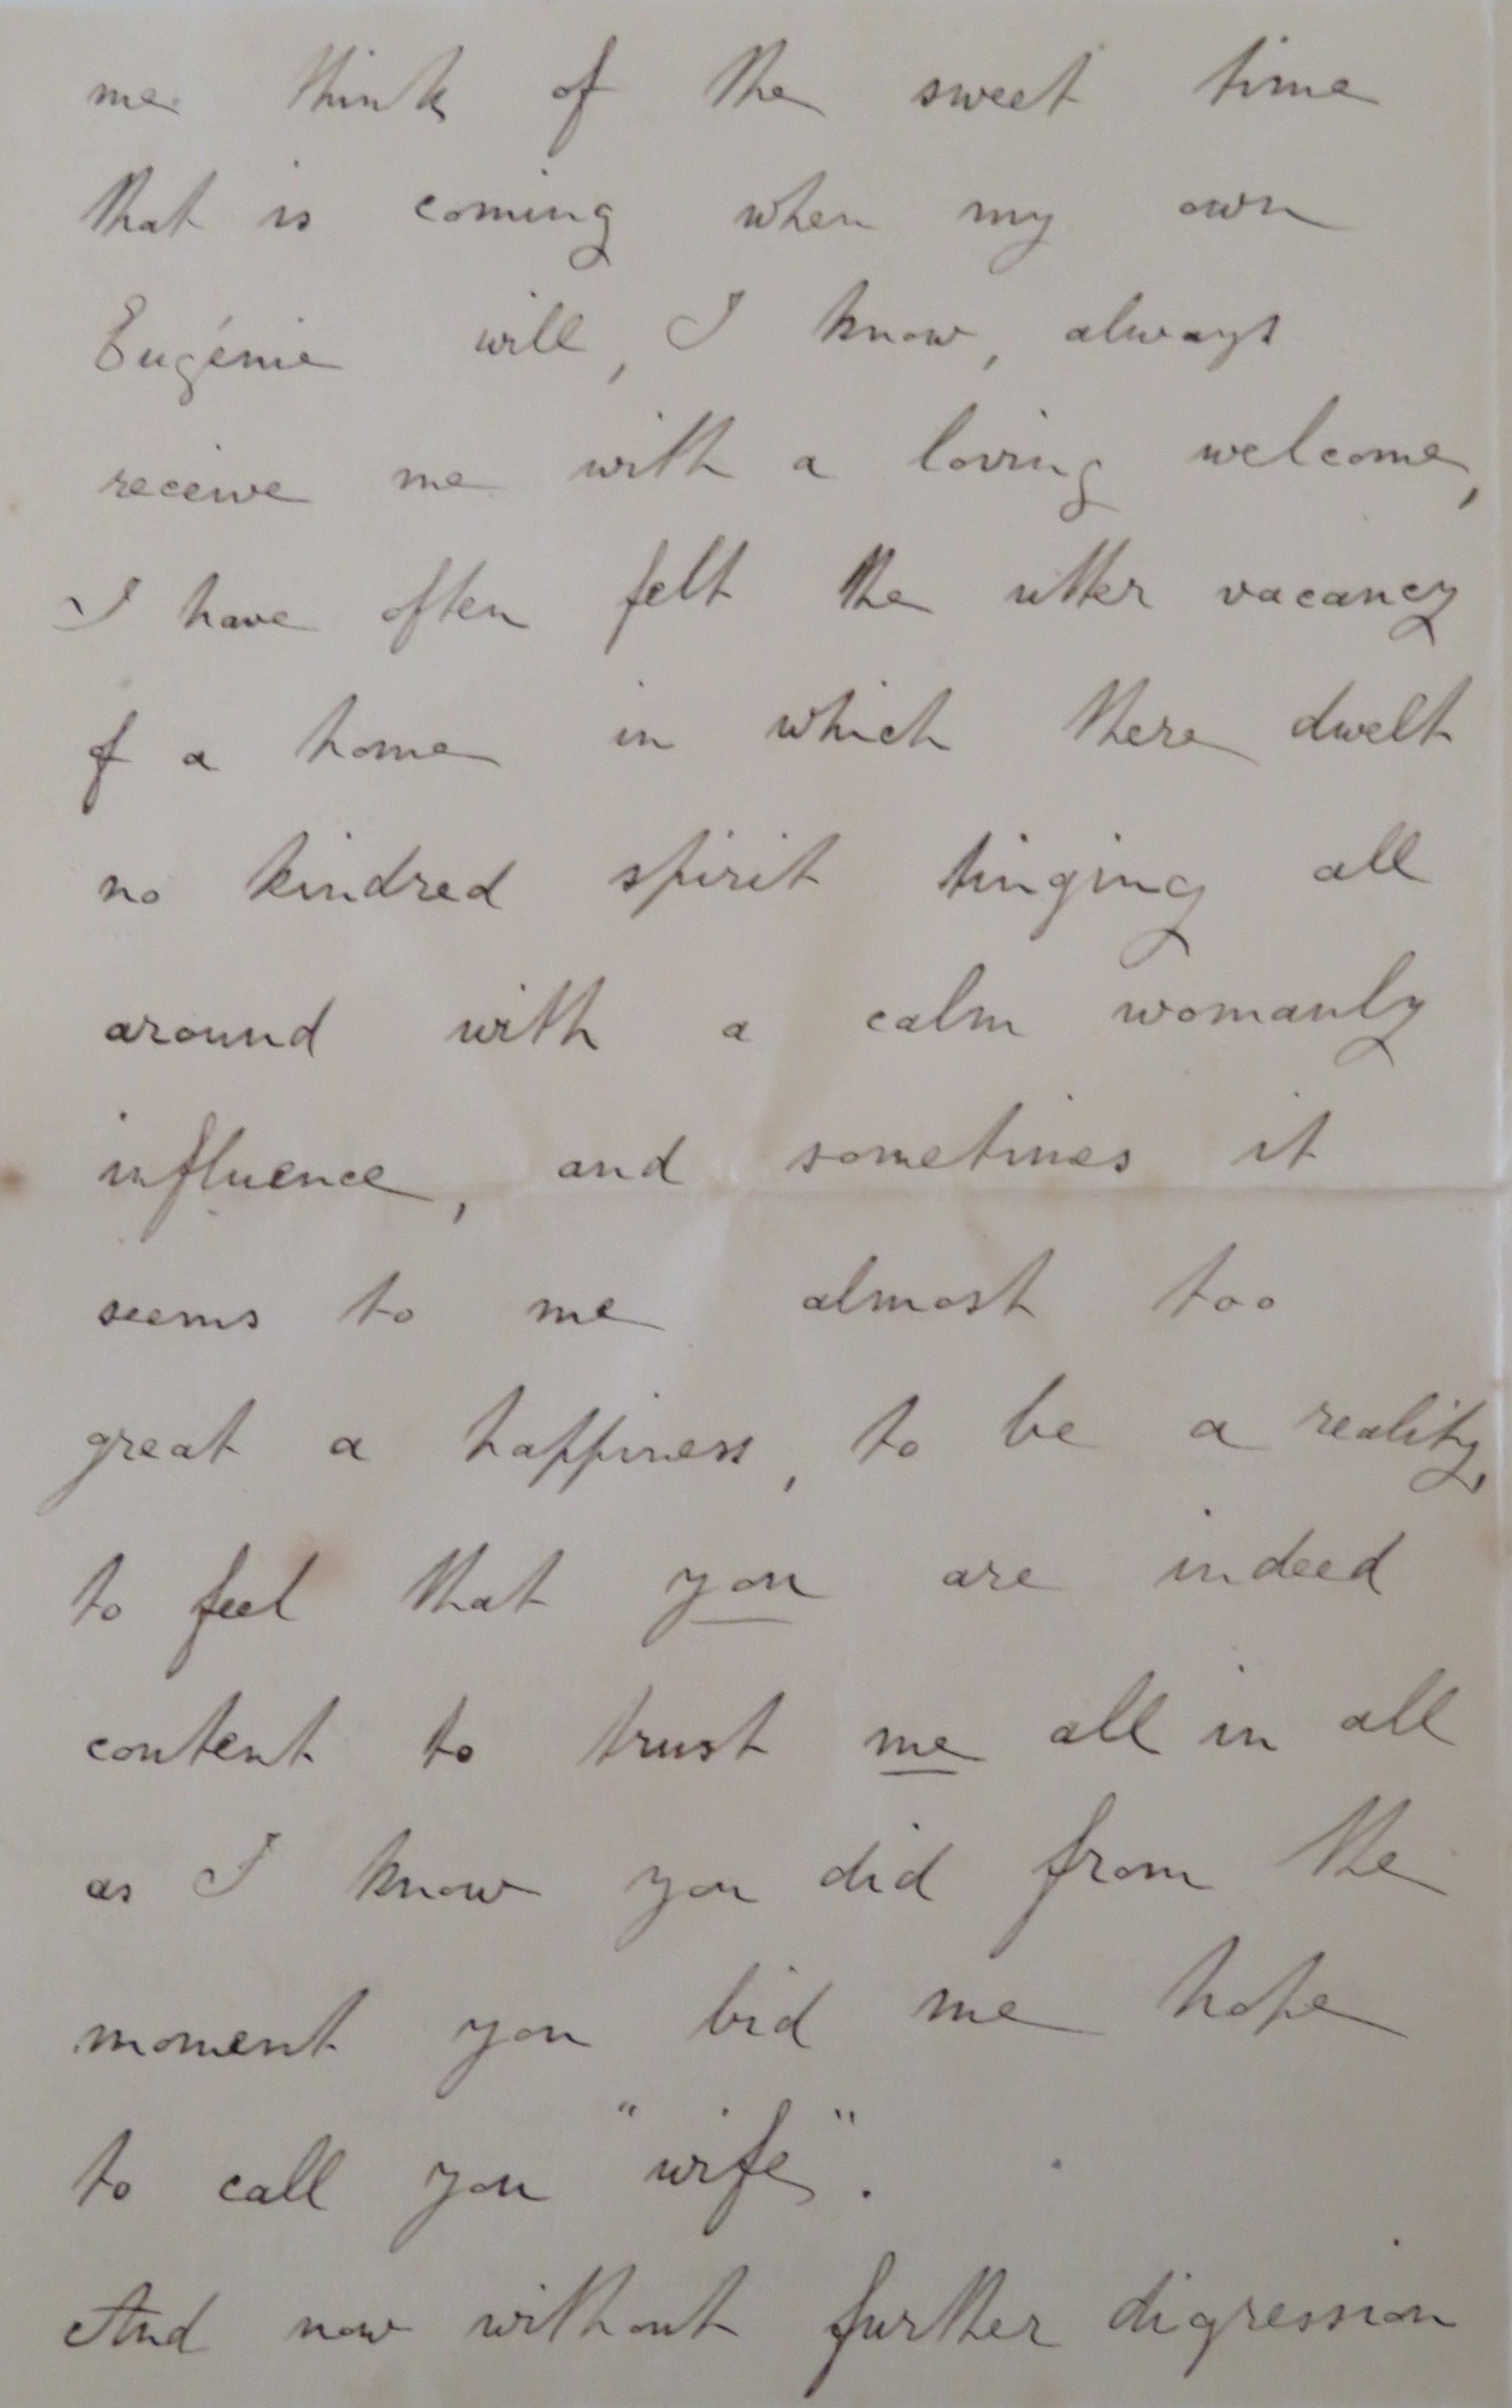 me think of the sweet time
that is coming when my own
Eugénie will, I know, always
receive me with a loving welcome,
I have often felt the utter vacancy
of a home in which there dwelt
no kindred spirit tinging all
around with a calm womanly
influence, and sometimes it
seems to me almost too
great a happiness, to be a reality,
to feel that you are indeed
content to trust me all in all
as I know you did from the
moment you bid me hope
to call you "wife".
And now without further digression